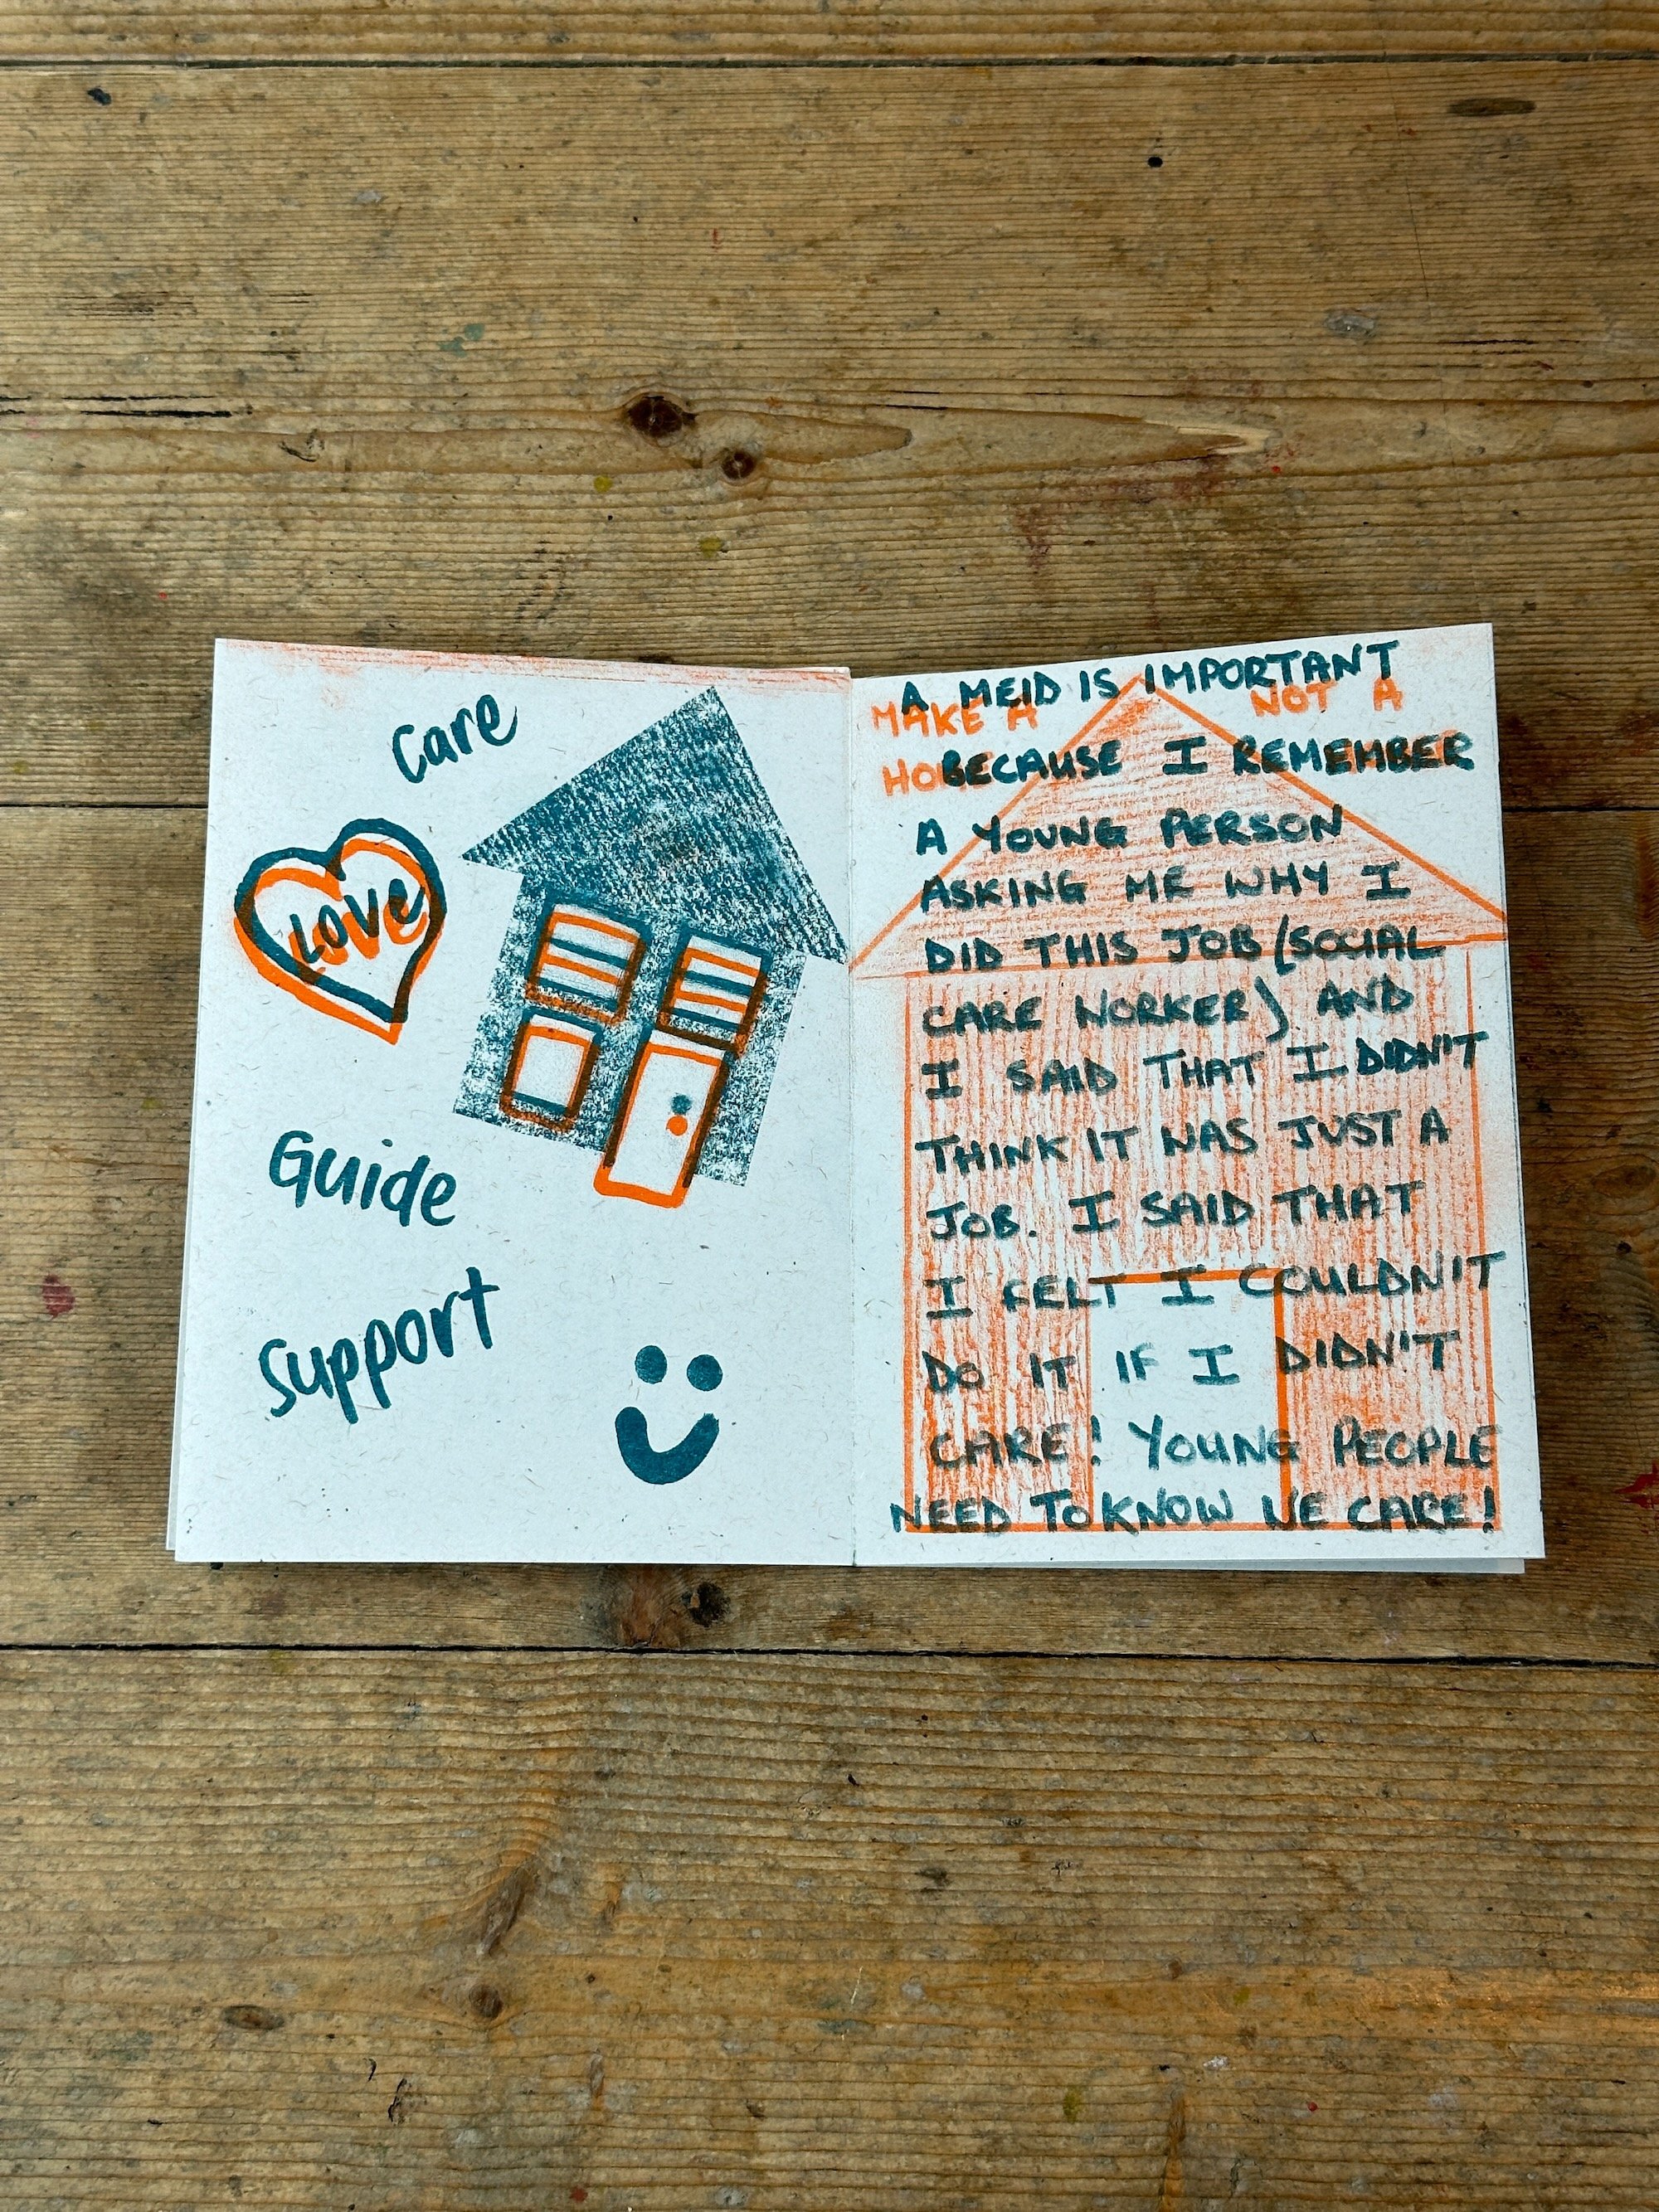 Care
LOVE
Guide
Support
A MEID IS IMPORTANT
MAKE A NOT A
BECAUSE I REMEMBER
A YOUNG PERSON
ASKING ME WHY I
DID THIS JOB (SOCIAL
CARE WORKER) AND
I SAID THAT I DIDN'T
THINK IT WAS JUST A
JOB. I SAID THAT
I FELT I COULDN'T
DO IT IF I DIDN'T
CARE! YOUNG PEOPLE
NEED TO KNOW WE CARE!